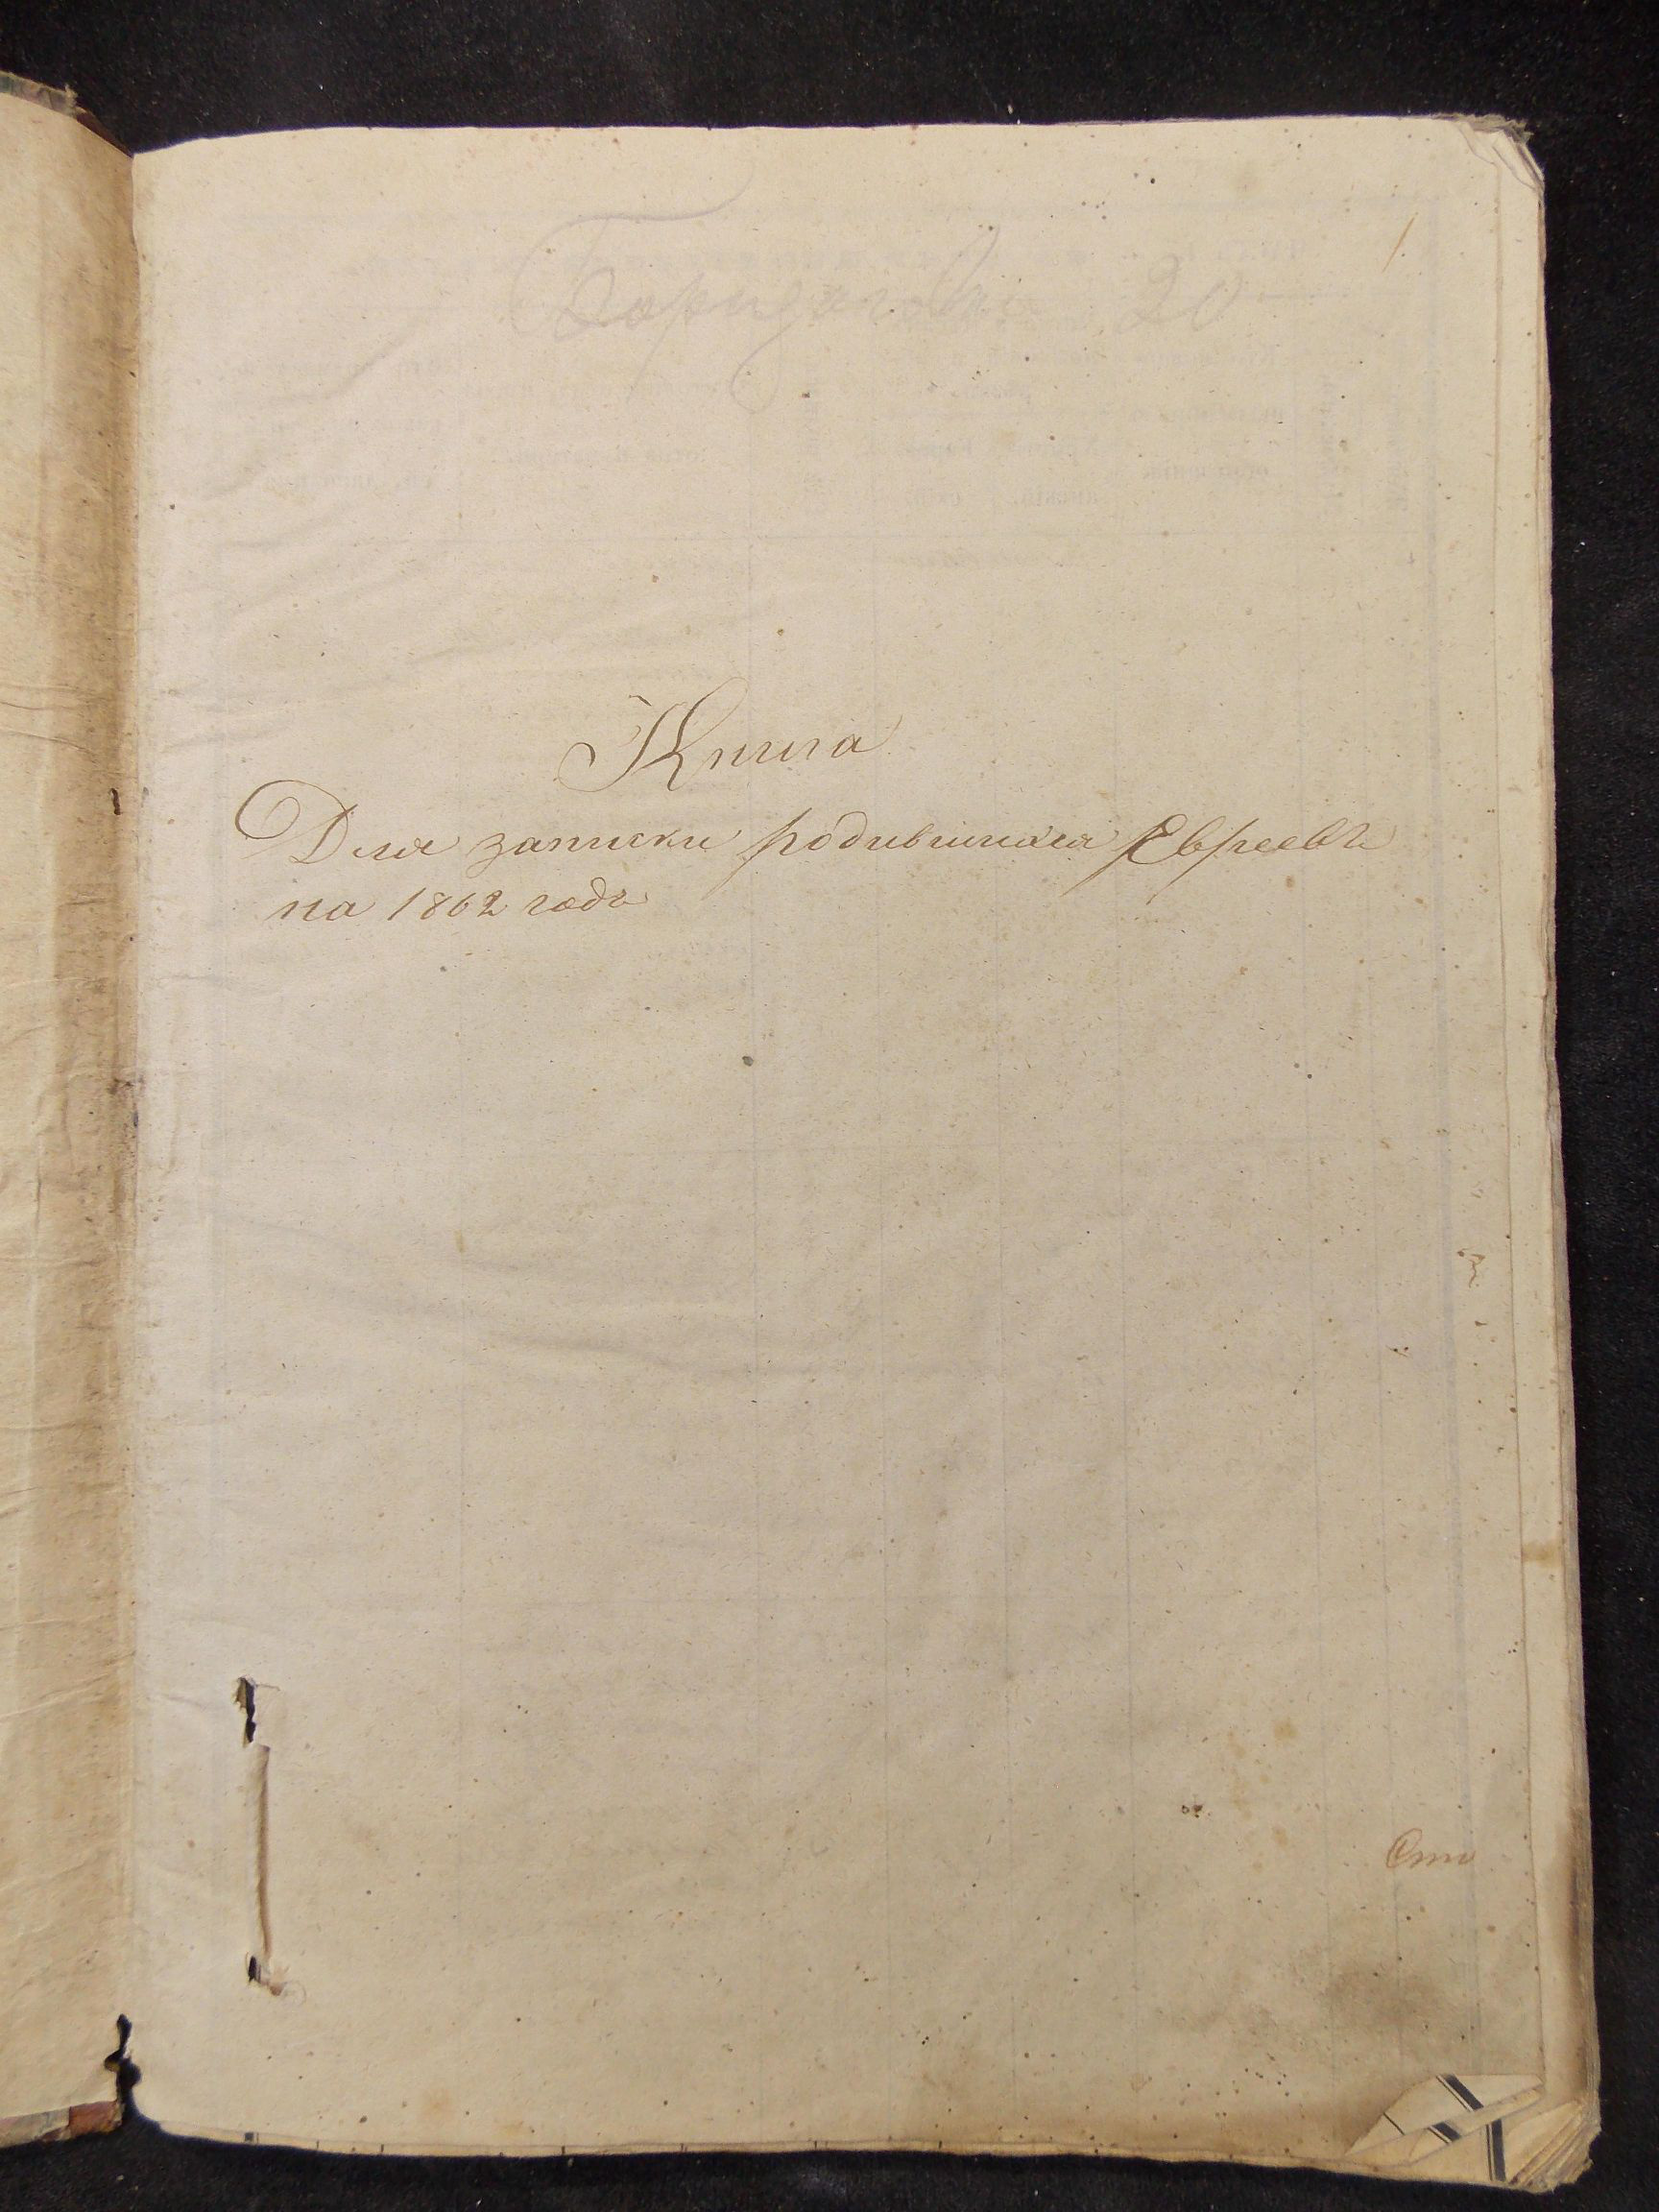 1.
20
Книга
Для записки родившихся Евреевъ
на 1862 годъ